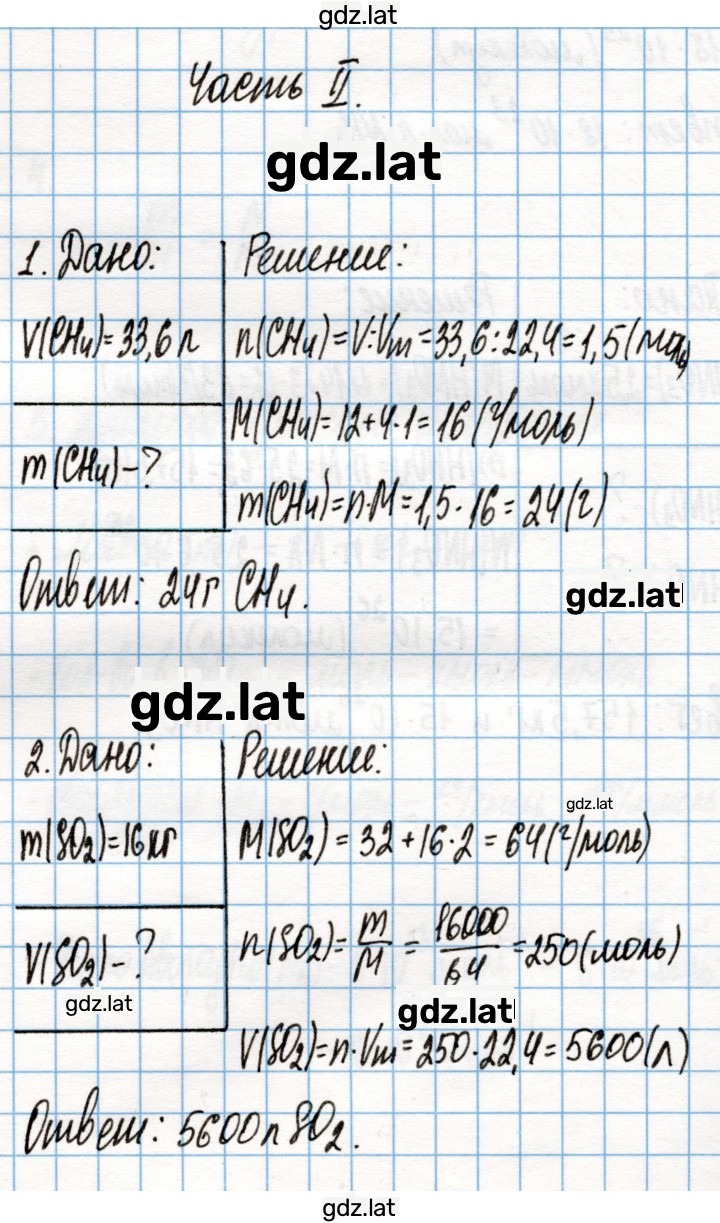 gdz.lat
Часть II.
gdz.lat
1. Дано:
V(CH₄)=33,6 л
m(CH₄)-?
Решение:
n(CH₄)=V:Vm=33,6:22,4=1,5(моль)
M(CH₄)=12+4·1=16(г/моль)
m(CH₄)=n·M=1,5·16=24(г)
Ответ: 24г CH₄.
gdz.lat
gdz.lat
2. Дано:
m(SO₂)=16кг
V(SO₂)-?
gdz.lat
Решение:
gdz.lat
M(SO₂)=32+16·2=64(г/моль)
n(SO₂)=m/M=16000/64=250(моль)
gdz.lat
V(SO₂)=n·Vm=250·22,4=5600(л)
Ответ: 5600л SO₂.
gdz.lat